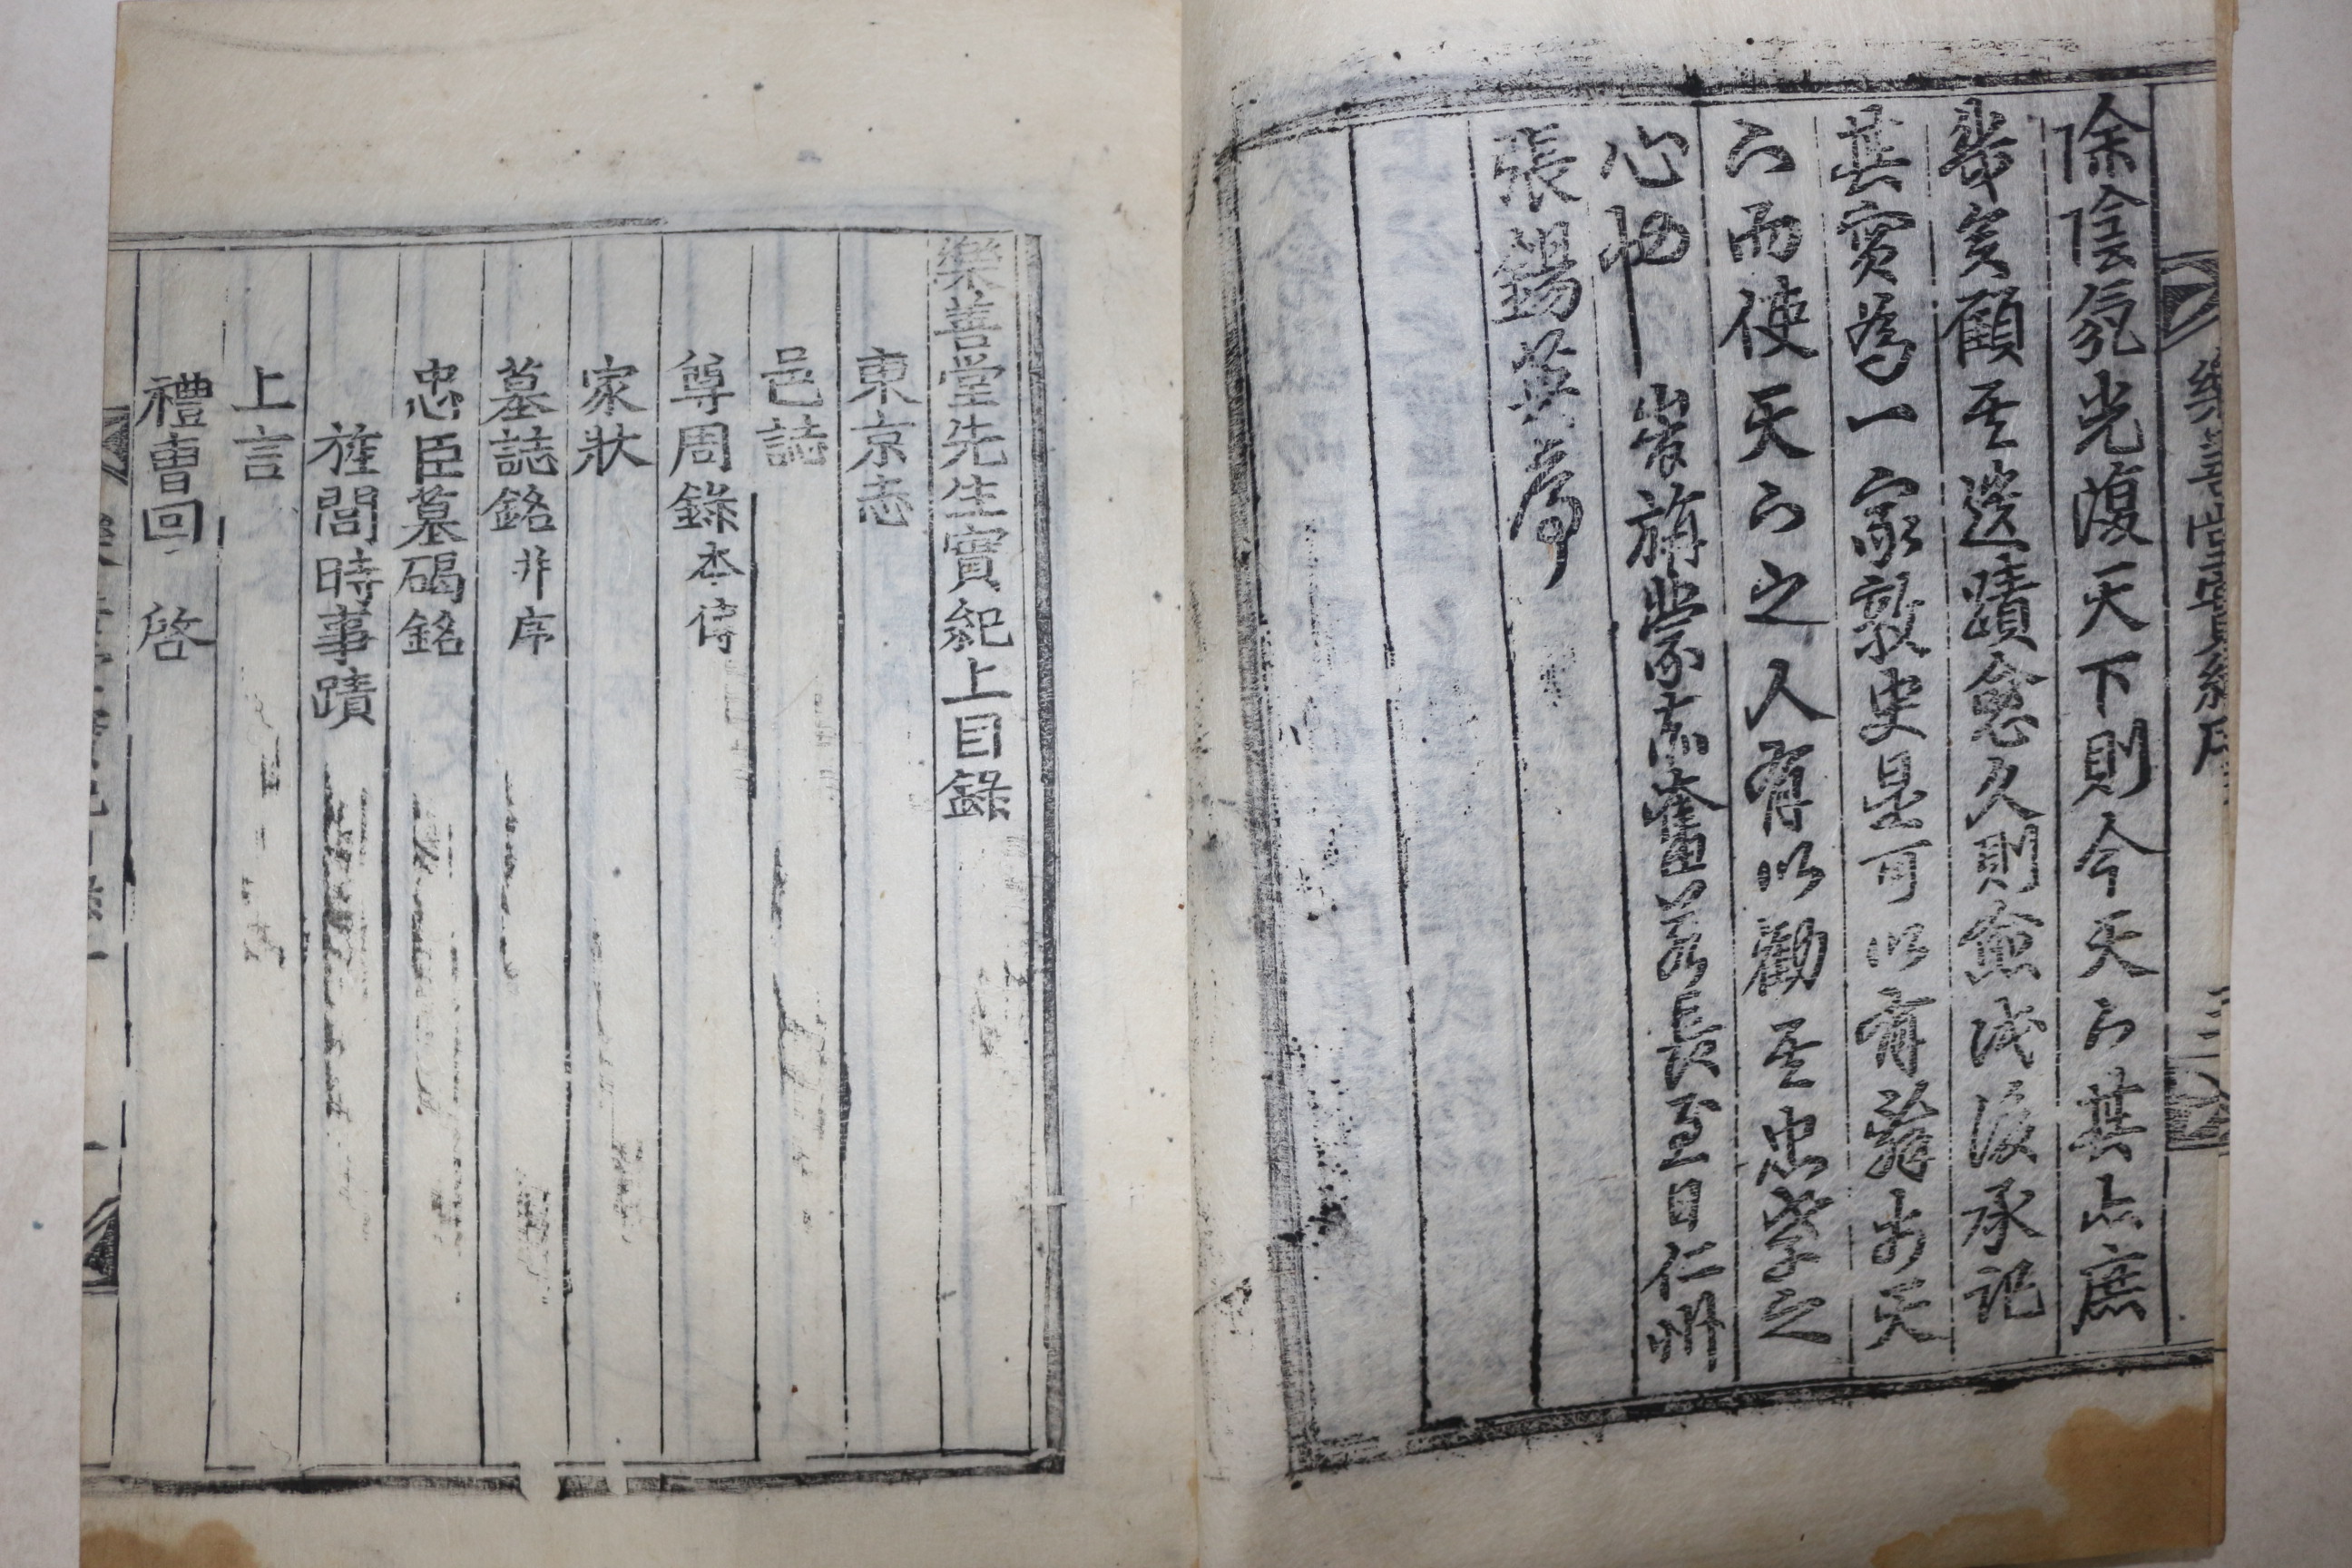 除陰氛光復天下則今天下其上庶
幾矣顧其遺蹟愈久則愈泯後承記
其實為一家敦史是可以有辭於天
下而使天下之人有以勸其忠孝之
心也
歲旃蒙赤奮若長至日仁州
張錫英序
樂善堂先生實紀上目錄
東京志
邑誌
尊周錄本傳
家狀
墓誌銘 并序
忠臣墓碣銘
旌閭時事蹟
上言
禮曹回啓